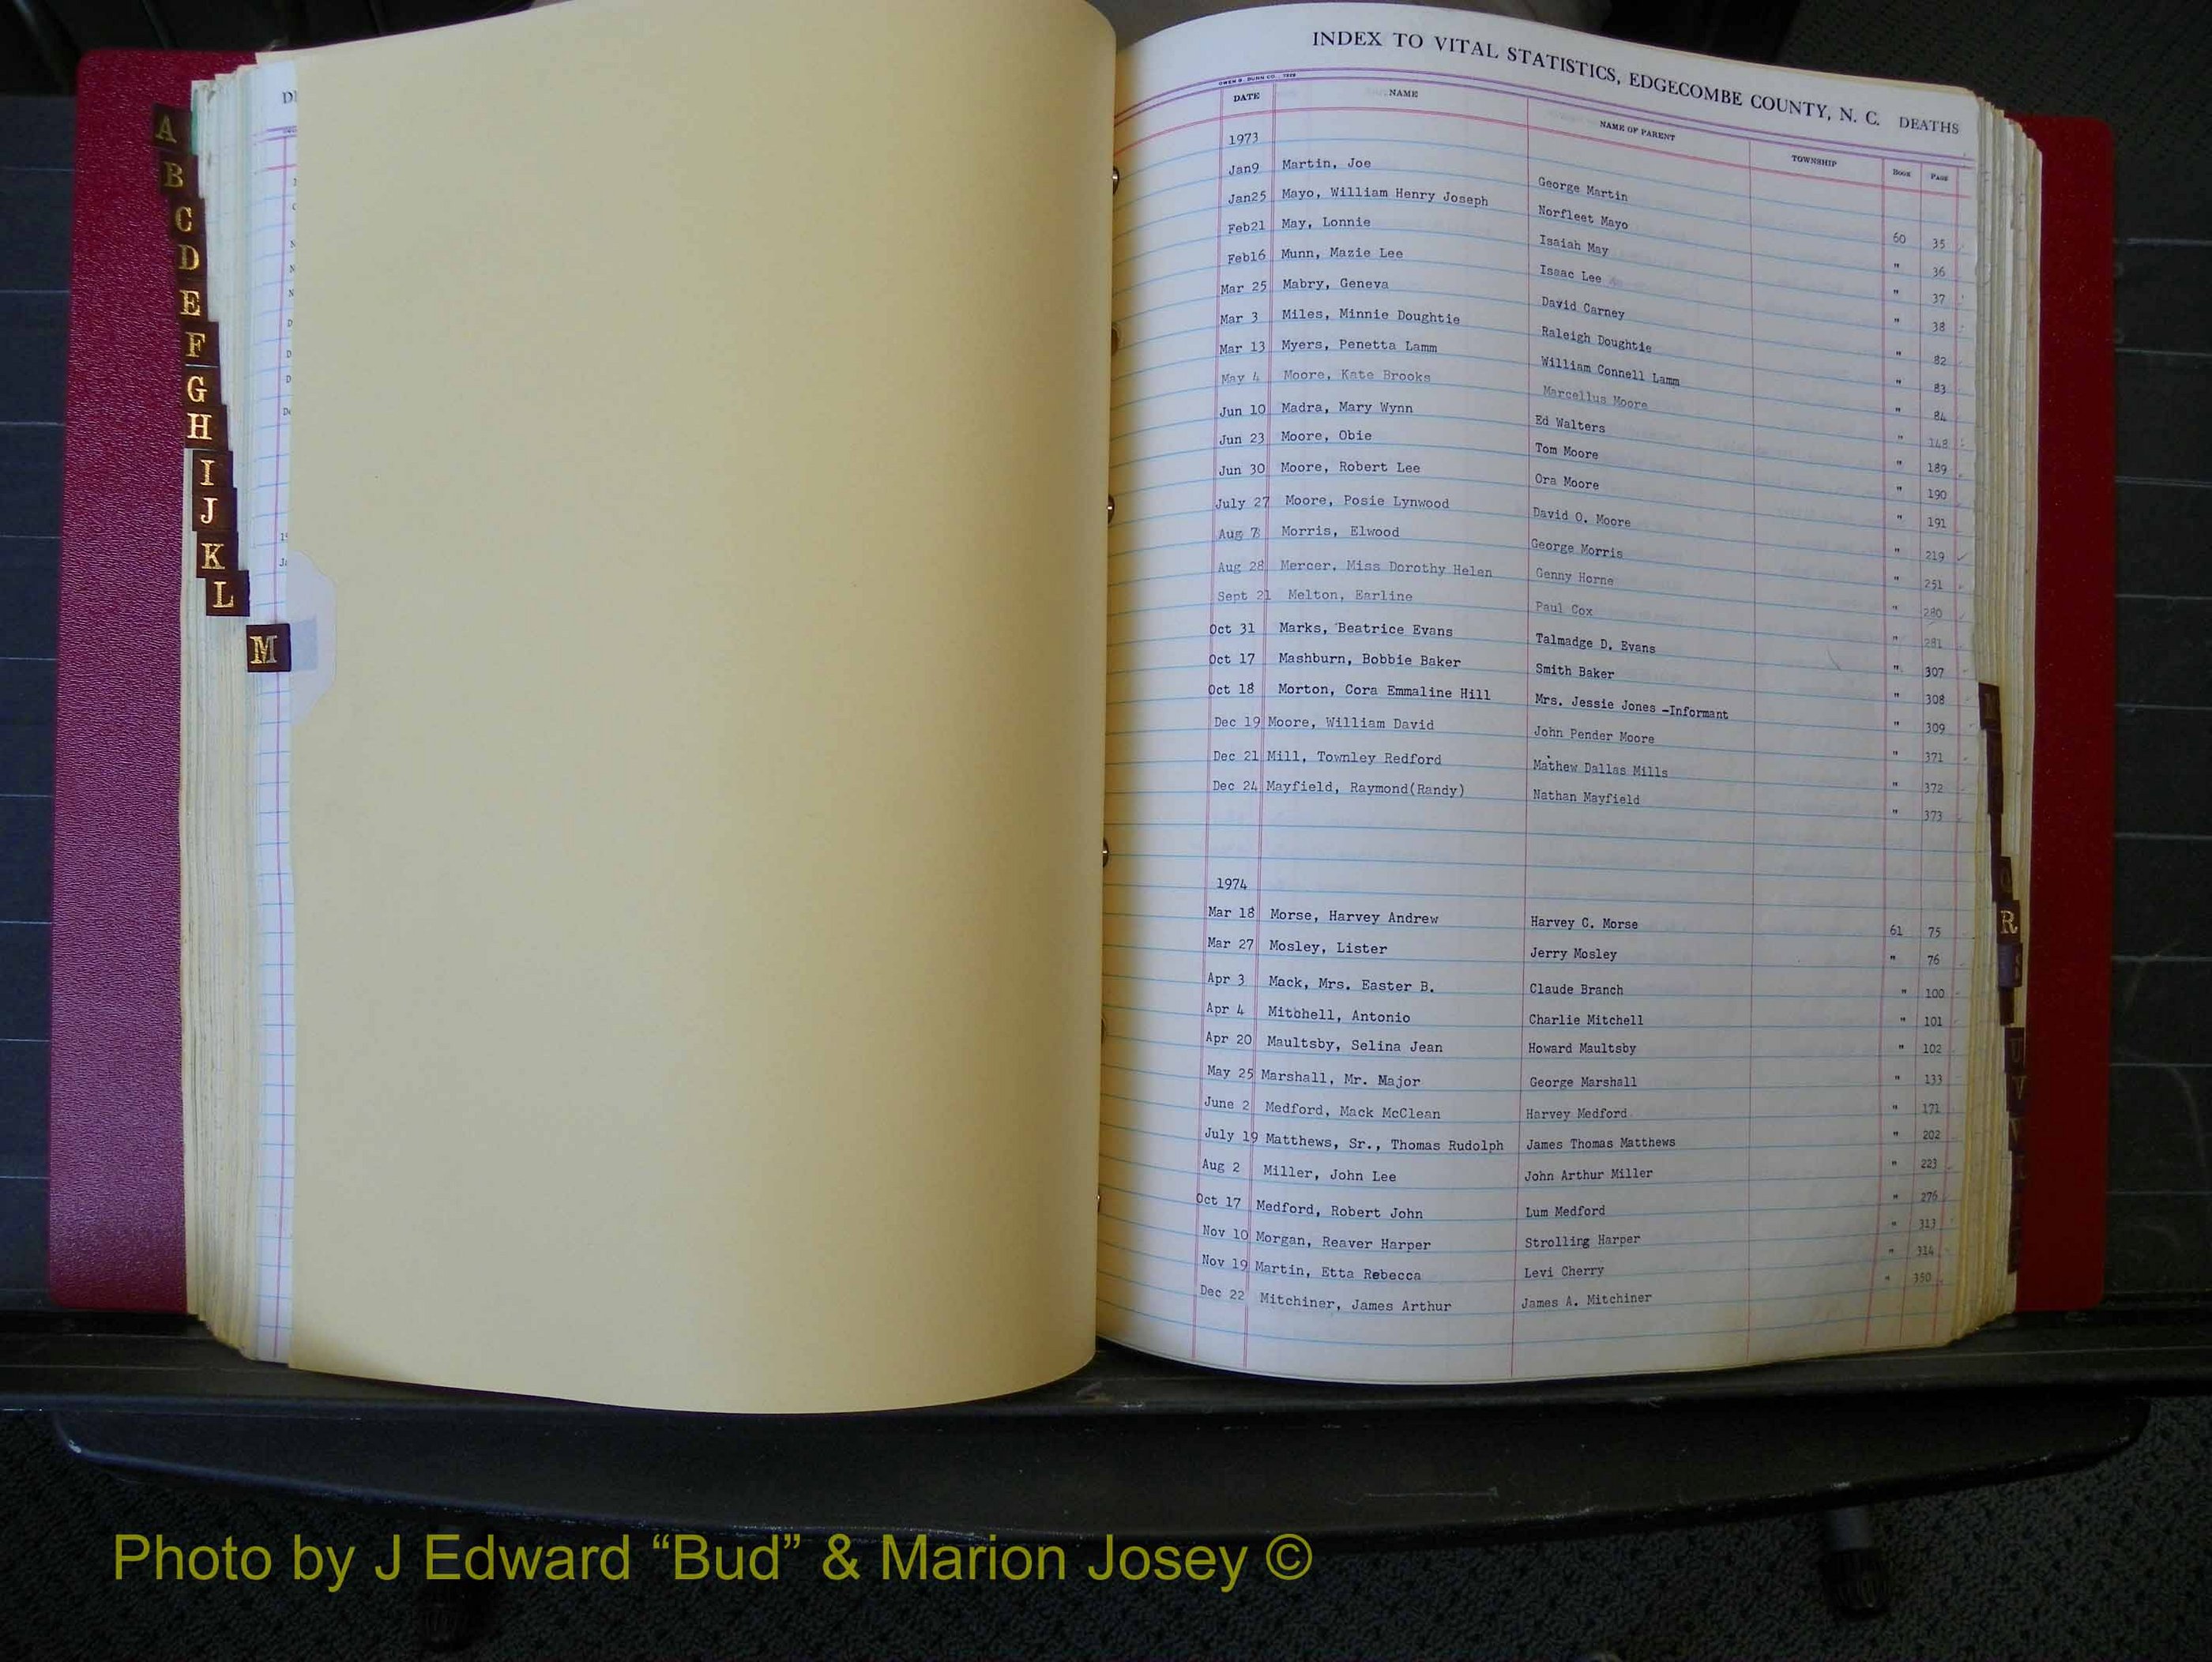 INDEX TO VITAL STATISTICS, EDGECOMBE COUNTY, N. C. DEATHS
OWEN G. DUNN CO.
DATE NAME NAME OF PARENT TOWNSHIP BOOK PAGE
1973
Jan9 Martin, Joe George Martin 60 35
Jan25 Mayo, William Henry Joseph Norfleet Mayo " 36
Feb21 May, Lonnie Isaiah May " 37
Feb16 Munn, Mazie Lee Isaac Lee " 38
Mar 25 Mabry, Geneva David Carney " 82
Mar 3 Miles, Minnie Doughtie Raleigh Doughtie " 83
Mar 13 Myers, Penetta Lamm William Connell Lamm " 84
May 4 Moore, Kate Brooks Marcellus Moore " 148
Jun 10 Madra, Mary Wynn Ed Walters " 189
Jun 23 Moore, Obie Tom Moore " 190
Jun 30 Moore, Robert Lee Ora Moore " 191
July 27 Moore, Posie Lynwood David O. Moore " 219
Aug Morris, Elwood George Morris " 251
Aug 28 Mercer, Miss Dorothy Helen Genny Horne " 280
Sept 21 Melton, Earline Paul Cox " 281
Oct 31 Marks, Beatrice Evans Talmadge D. Evans " 307
Oct 17 Mashburn, Bobbie Baker Smith Baker " 308
Oct 18 Morton, Cora Emmaline Hill Mrs. Jessie Jones -Informant " 309
Dec 19 Moore, William David John Pender Moore " 371
Dec 21 Mill, Townley Redford Mathew Dallas Mills " 372
Dec 24 Mayfield, Raymond(Randy) Nathan Mayfield " 373
1974
Mar 18 Morse, Harvey Andrew Harvey C. Morse 61 75
Mar 27 Mosley, Lister Jerry Mosley " 76
Apr 3 Mack, Mrs. Easter B. Claude Branch " 100
Apr 4 Mitchell, Antonio Charlie Mitchell " 101
Apr 20 Maultsby, Selina Jean Howard Maultsby " 102
May 25 Marshall, Mr. Major George Marshall " 133
June 2 Medford, Mack McClean Harvey Medford " 171
July 19 Matthews, Sr., Thomas Rudolph James Thomas Matthews " 202
Aug 2 Miller, John Lee John Arthur Miller " 223
Oct 17 Medford, Robert John Lum Medford " 276
Nov 10 Morgan, Reaver Harper Strolling Harper " 313
Nov 19 Martin, Etta Rebecca Levi Cherry " 314
Dec 22 Mitchiner, James Arthur James A. Mitchiner " 350
A
B
C
D
E
F
G
H
I
J
K
L
M
R
U
V
Photo by J Edward “Bud” & Marion Josey ©